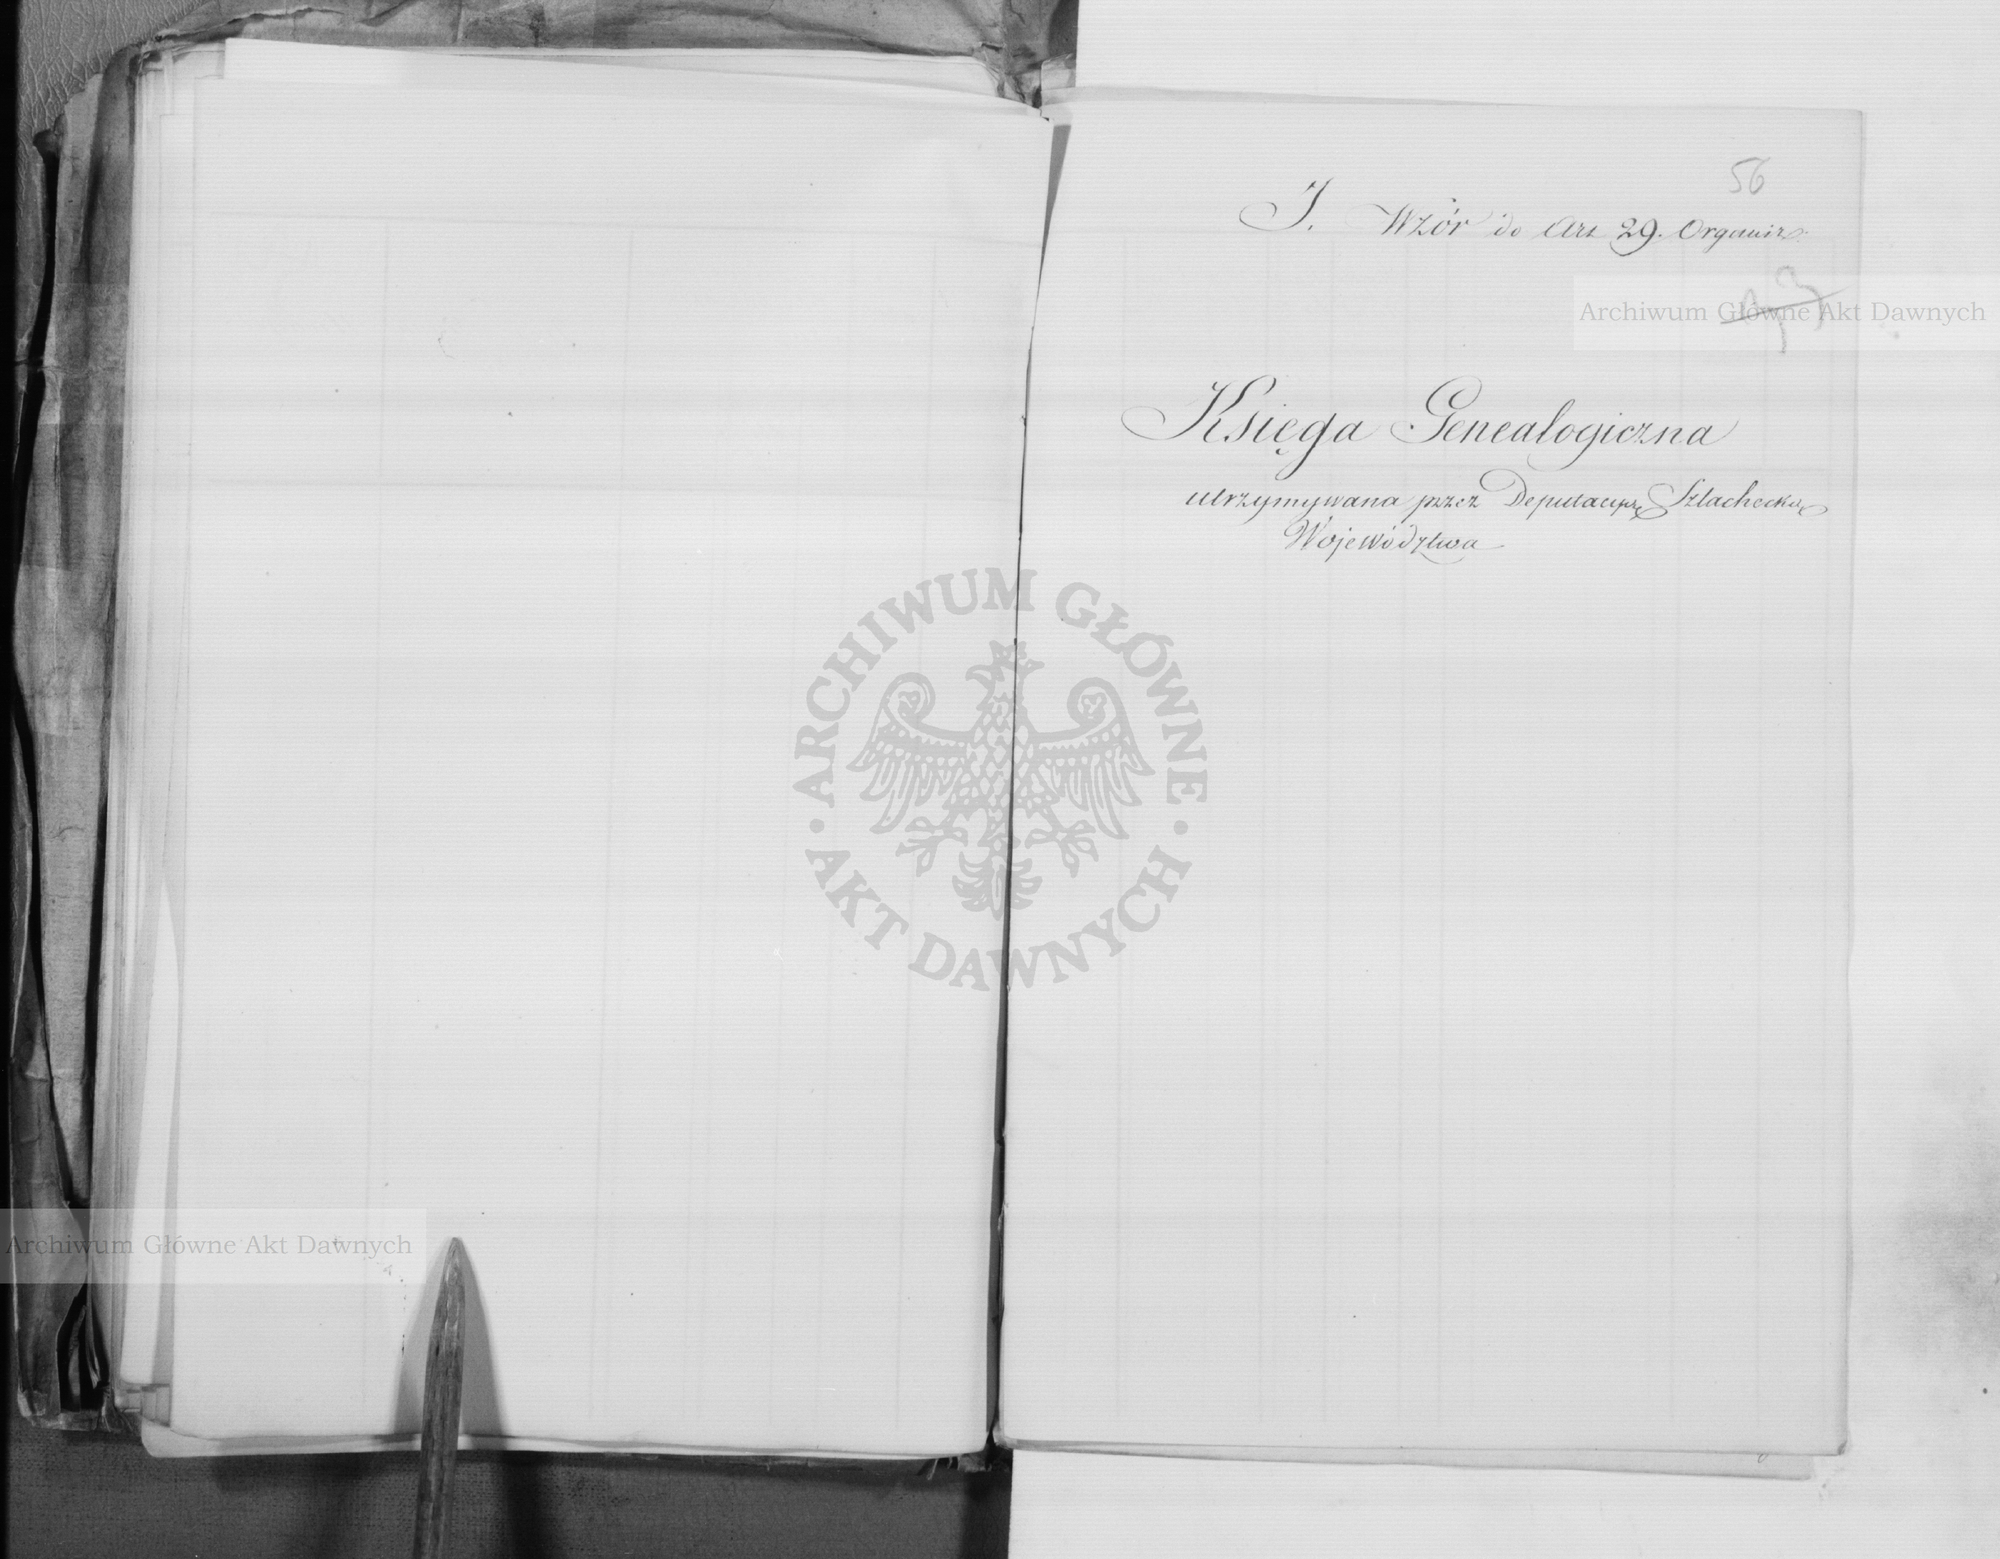 56
I. Wzór do Art 29. Organiz.
Archiwum Główne Akt Dawnych
Księga Genealogiczna
utrzymywana przez Deputacyę Szlachecką
Województwa
ARCHIWUM GŁÓWNE AKT DAWNYCH
Archiwum Główne Akt Dawnych